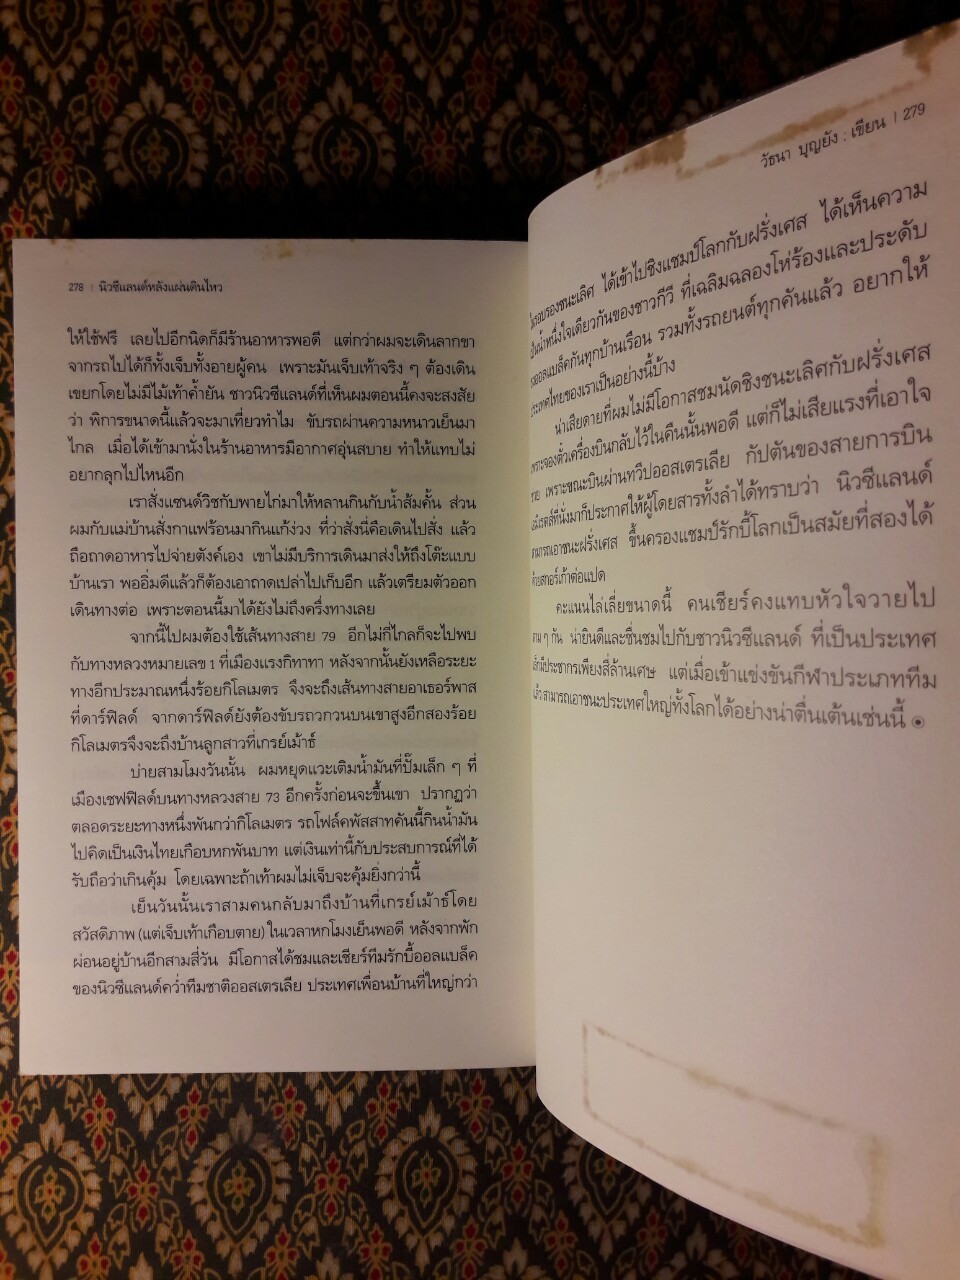 278 | นิวซีแลนด์หลังแผ่นดินไหว
ให้ใช้ฟรี เลยไปอีกนิดก็มีร้านอาหารพอดี แต่กว่าผมจะเดินลากขา
จากรถไปได้ก็ทั้งเจ็บทั้งอายผู้คน เพราะมันเจ็บเท้าจริง ๆ ต้องเดิน
เขยกโดยไม่มีไม้เท้าค้ำยัน ชาวนิวซีแลนด์ที่เห็นผมตอนนี้คงจะสงสัย
ว่า พิการขนาดนี้แล้วจะมาเที่ยวทำไม ขับรถผ่านความหนาวเย็นมา
ไกล เมื่อได้เข้ามานั่งในร้านอาหารมีอากาศอุ่นสบาย ทำให้แทบไม่
อยากลุกไปไหนอีก
เราสั่งแซนด์วิชกับพายไก่มาให้หลานกินกับน้ำส้มคั้น ส่วน
ผมกับแม่บ้านสั่งกาแฟร้อนมากินแก้ง่วง ที่ว่าสั่งนี่คือเดินไปสั่ง แล้ว
ถือถาดอาหารไปจ่ายตังค์เอง เขาไม่มีบริการเดินมาส่งให้ถึงโต๊ะแบบ
บ้านเรา พออิ่มดีแล้วก็ต้องเอาถาดเปล่าไปเก็บอีก แล้วเตรียมตัวออก
เดินทางต่อ เพราะตอนนี้มาได้ยังไม่ถึงครึ่งทางเลย
จากนี้ไปผมต้องใช้เส้นทางสาย 79 อีกไม่กี่ไกลก็จะไปพบ
กับทางหลวงหมายเลข 1 ที่เมืองแรงกิทาทา หลังจากนั้นยังเหลือระยะ
ทางอีกประมาณหนึ่งร้อยกิโลเมตร จึงจะถึงเส้นทางสายอาเธอร์พาส
ที่ดาร์ฟิลด์ จากดาร์ฟิลด์ยังต้องขับรถวกวนบนเขาสูงอีกสองร้อย
กิโลเมตรจึงจะถึงบ้านลูกสาวที่เกรย์เม้าธ์
บ่ายสามโมงวันนั้น ผมหยุดแวะเติมน้ำมันที่ปั๊มเล็ก ๆ ที่
เมืองเชฟฟิลด์บนทางหลวงสาย 73 อีกครั้งก่อนจะขึ้นเขา ปรากฏว่า
ตลอดระยะทางหนึ่งพันกว่ากิโลเมตร รถโฟล์คพัสสาทคันนี้กินน้ำมัน
ไปคิดเป็นเงินไทยเกือบหกพันบาท แต่เงินเท่านี้กับประสบการณ์ที่ได้
รับถือว่าเกินคุ้ม โดยเฉพาะถ้าเท้าผมไม่เจ็บจะคุ้มยิ่งกว่านี้
เย็นวันนั้นเราสามคนกลับมาถึงบ้านที่เกรย์เม้าธ์โดย
สวัสดิภาพ (แต่เจ็บเท้าเกือบตาย) ในเวลาหกโมงเย็นพอดี หลังจากพัก
ผ่อนอยู่บ้านอีกสามสี่วัน มีโอกาสได้ชมและเชียร์ทีมรักบี้ออลแบล็ค
ของนิวซีแลนด์คว่ำทีมชาติออสเตรเลีย ประเทศเพื่อนบ้านที่ใหญ่กว่า
วัธนา บุญยัง : เขียน | 279
ในรอบรองชนะเลิศ ได้เข้าไปชิงแชมป์โลกกับฝรั่งเศส ได้เห็นความ
เป็นน้ำหนึ่งใจเดียวกันของชาวกีวี ที่เฉลิมฉลองโห่ร้องและประดับ
ออลแบล็คกันทุกบ้านเรือน รวมทั้งรถยนต์ทุกคันแล้ว อยากให้
ประเทศไทยของเราเป็นอย่างนี้บ้าง
น่าเสียดายที่ผมไม่มีโอกาสชมนัดชิงชนะเลิศกับฝรั่งเศส
เพราะจองตั๋วเครื่องบินกลับไว้ในคืนนั้นพอดี แต่ก็ไม่เสียแรงที่เอาใจ
เพราะขณะบินผ่านทวีปออสเตรเลีย กัปตันของสายการบิน
ที่นั่งมาก็ประกาศให้ผู้โดยสารทั้งลำได้ทราบว่า นิวซีแลนด์
สามารถเอาชนะฝรั่งเศส ขึ้นครองแชมป์รักบี้โลกเป็นสมัยที่สองได้
ด้วยสกอร์เก้าต่อแปด
คะแนนไล่เลี่ยขนาดนี้ คนเชียร์คงแทบหัวใจวายไป
ตาม ๆ กัน น่ายินดีและชื่นชมไปกับชาวนิวซีแลนด์ ที่เป็นประเทศ
เล็กมีประชากรเพียงสี่ล้านเศษ แต่เมื่อเข้าแข่งขันกีฬาประเภททีม
แล้วสามารถเอาชนะประเทศใหญ่ทั้งโลกได้อย่างน่าตื่นเต้นเช่นนี้